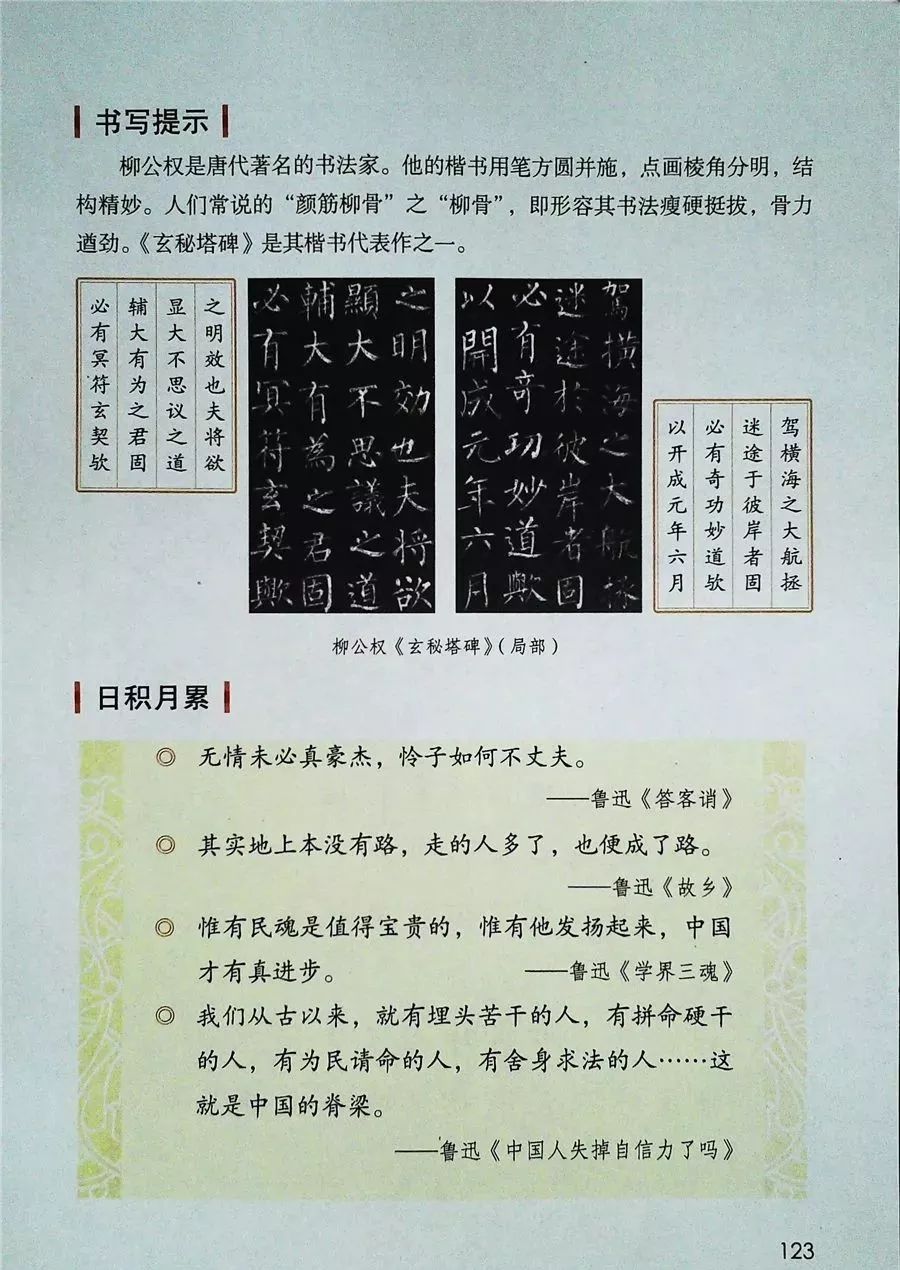 书写提示
柳公权是唐代著名的书法家。他的楷书用笔方圆并施，点画棱角分明，结
构精妙。人们常说的“颜筋柳骨”之“柳骨”，即形容其书法瘦硬挺拔，骨力
遒劲。《玄秘塔碑》是其楷书代表作之一。
之明效也夫将欲
显大不思议之道
辅大有为之君固
必有冥符玄契欤
之明効也夫將欲
顯大不思議之道
輔大有為之君固
必有冥符玄契歟
駕橫海之大航拯
迷途於彼岸者固
必有奇功妙道歟
以開成元年六月
驾横海之大航拯
迷途于彼岸者固
必有奇功妙道欤
以开成元年六月
柳公权《玄秘塔碑》（局部）
日积月累
◎ 无情未必真豪杰，怜子如何不丈夫。
——鲁迅《答客诮》
◎ 其实地上本没有路，走的人多了，也便成了路。
——鲁迅《故乡》
◎ 惟有民魂是值得宝贵的，惟有他发扬起来，中国
才有真进步。 ——鲁迅《学界三魂》
◎ 我们从古以来，就有埋头苦干的人，有拼命硬干
的人，有为民请命的人，有舍身求法的人……这
就是中国的脊梁。
——鲁迅《中国人失掉自信力了吗》
123